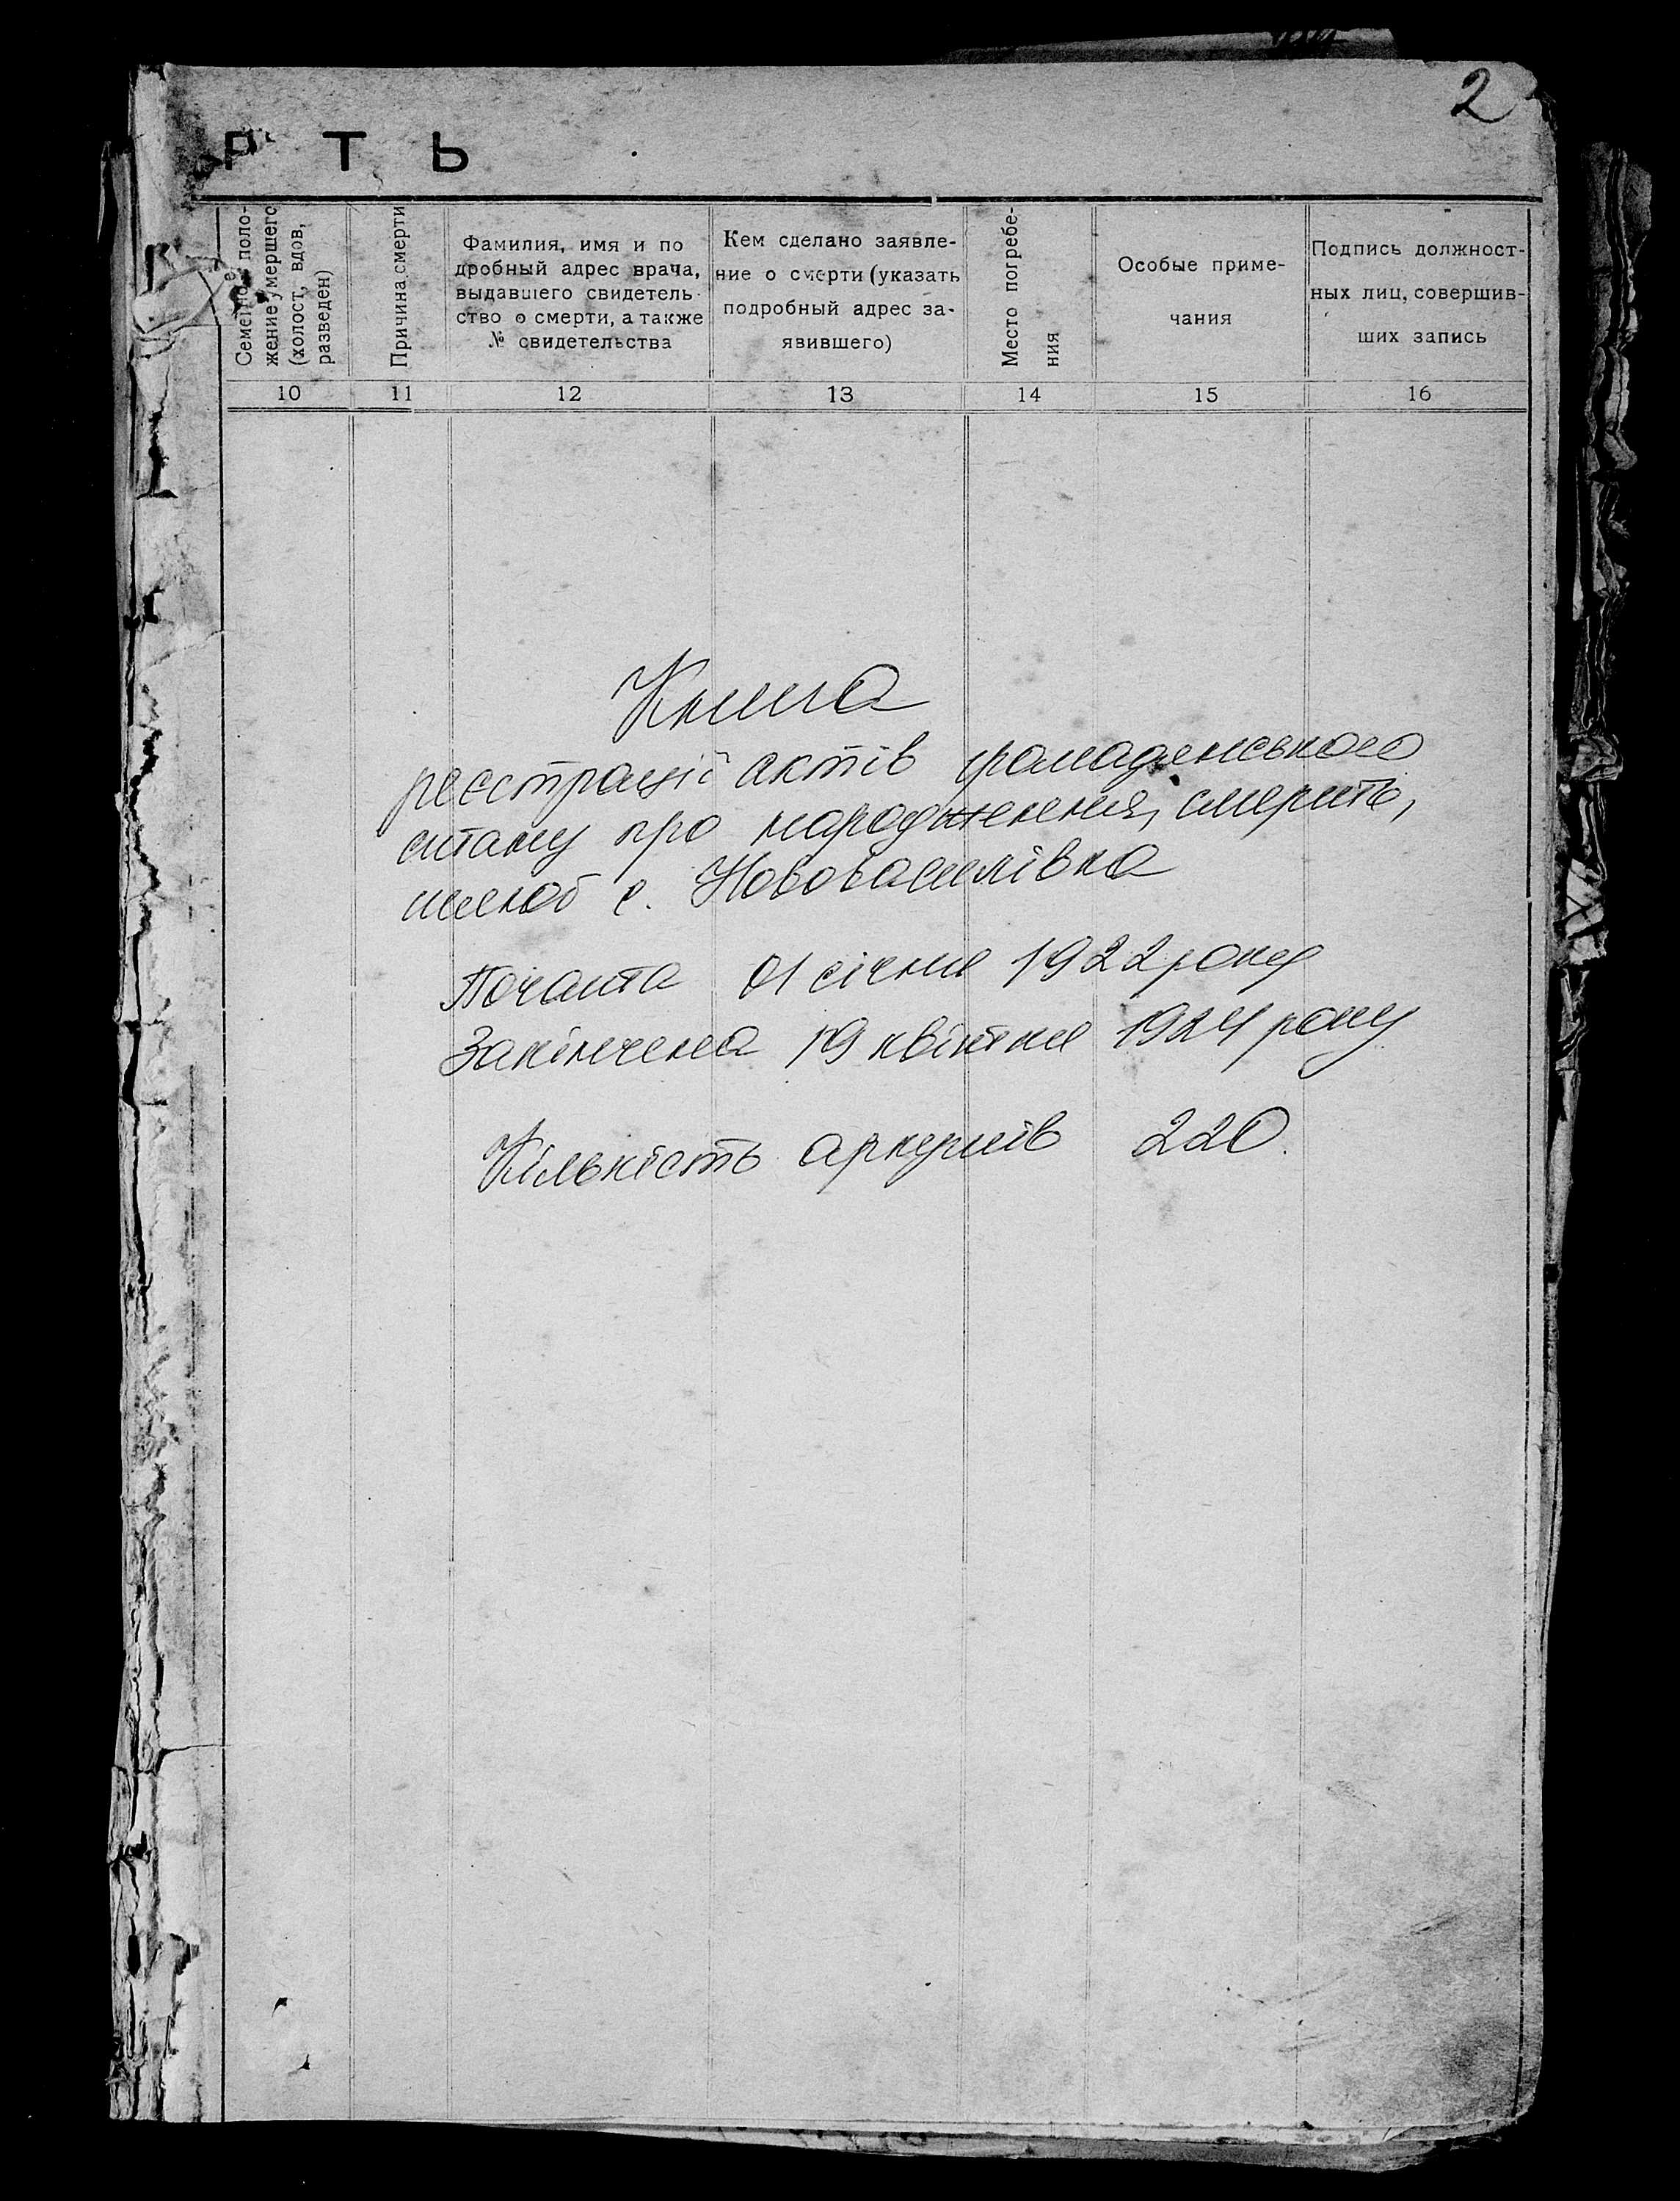 2
Р Т Ь
Семейное поло-
жение умершего
(холост, вдов,
разведен)
Причина смерти
Фамилия, имя и по
дробный адрес врача,
выдавшего свидетель-
ство о смерти, а также
№ свидетельства
Кем сделано заявле-
ние о смерти (указать
подробный адрес за-
явившего)
Место погребе-
ния
Особые приме-
чания
Подпись должност-
ных лиц, совершив-
ших запись
10 11 12 13 14 15 16
Книга
реєстрації актів громадянського
стану про народження, смерть,
шлюб с. Нововасилівка
Почата 01 січня 1922 року
Закінчена 19 квітня 1924 року
Кількість аркушів 220.